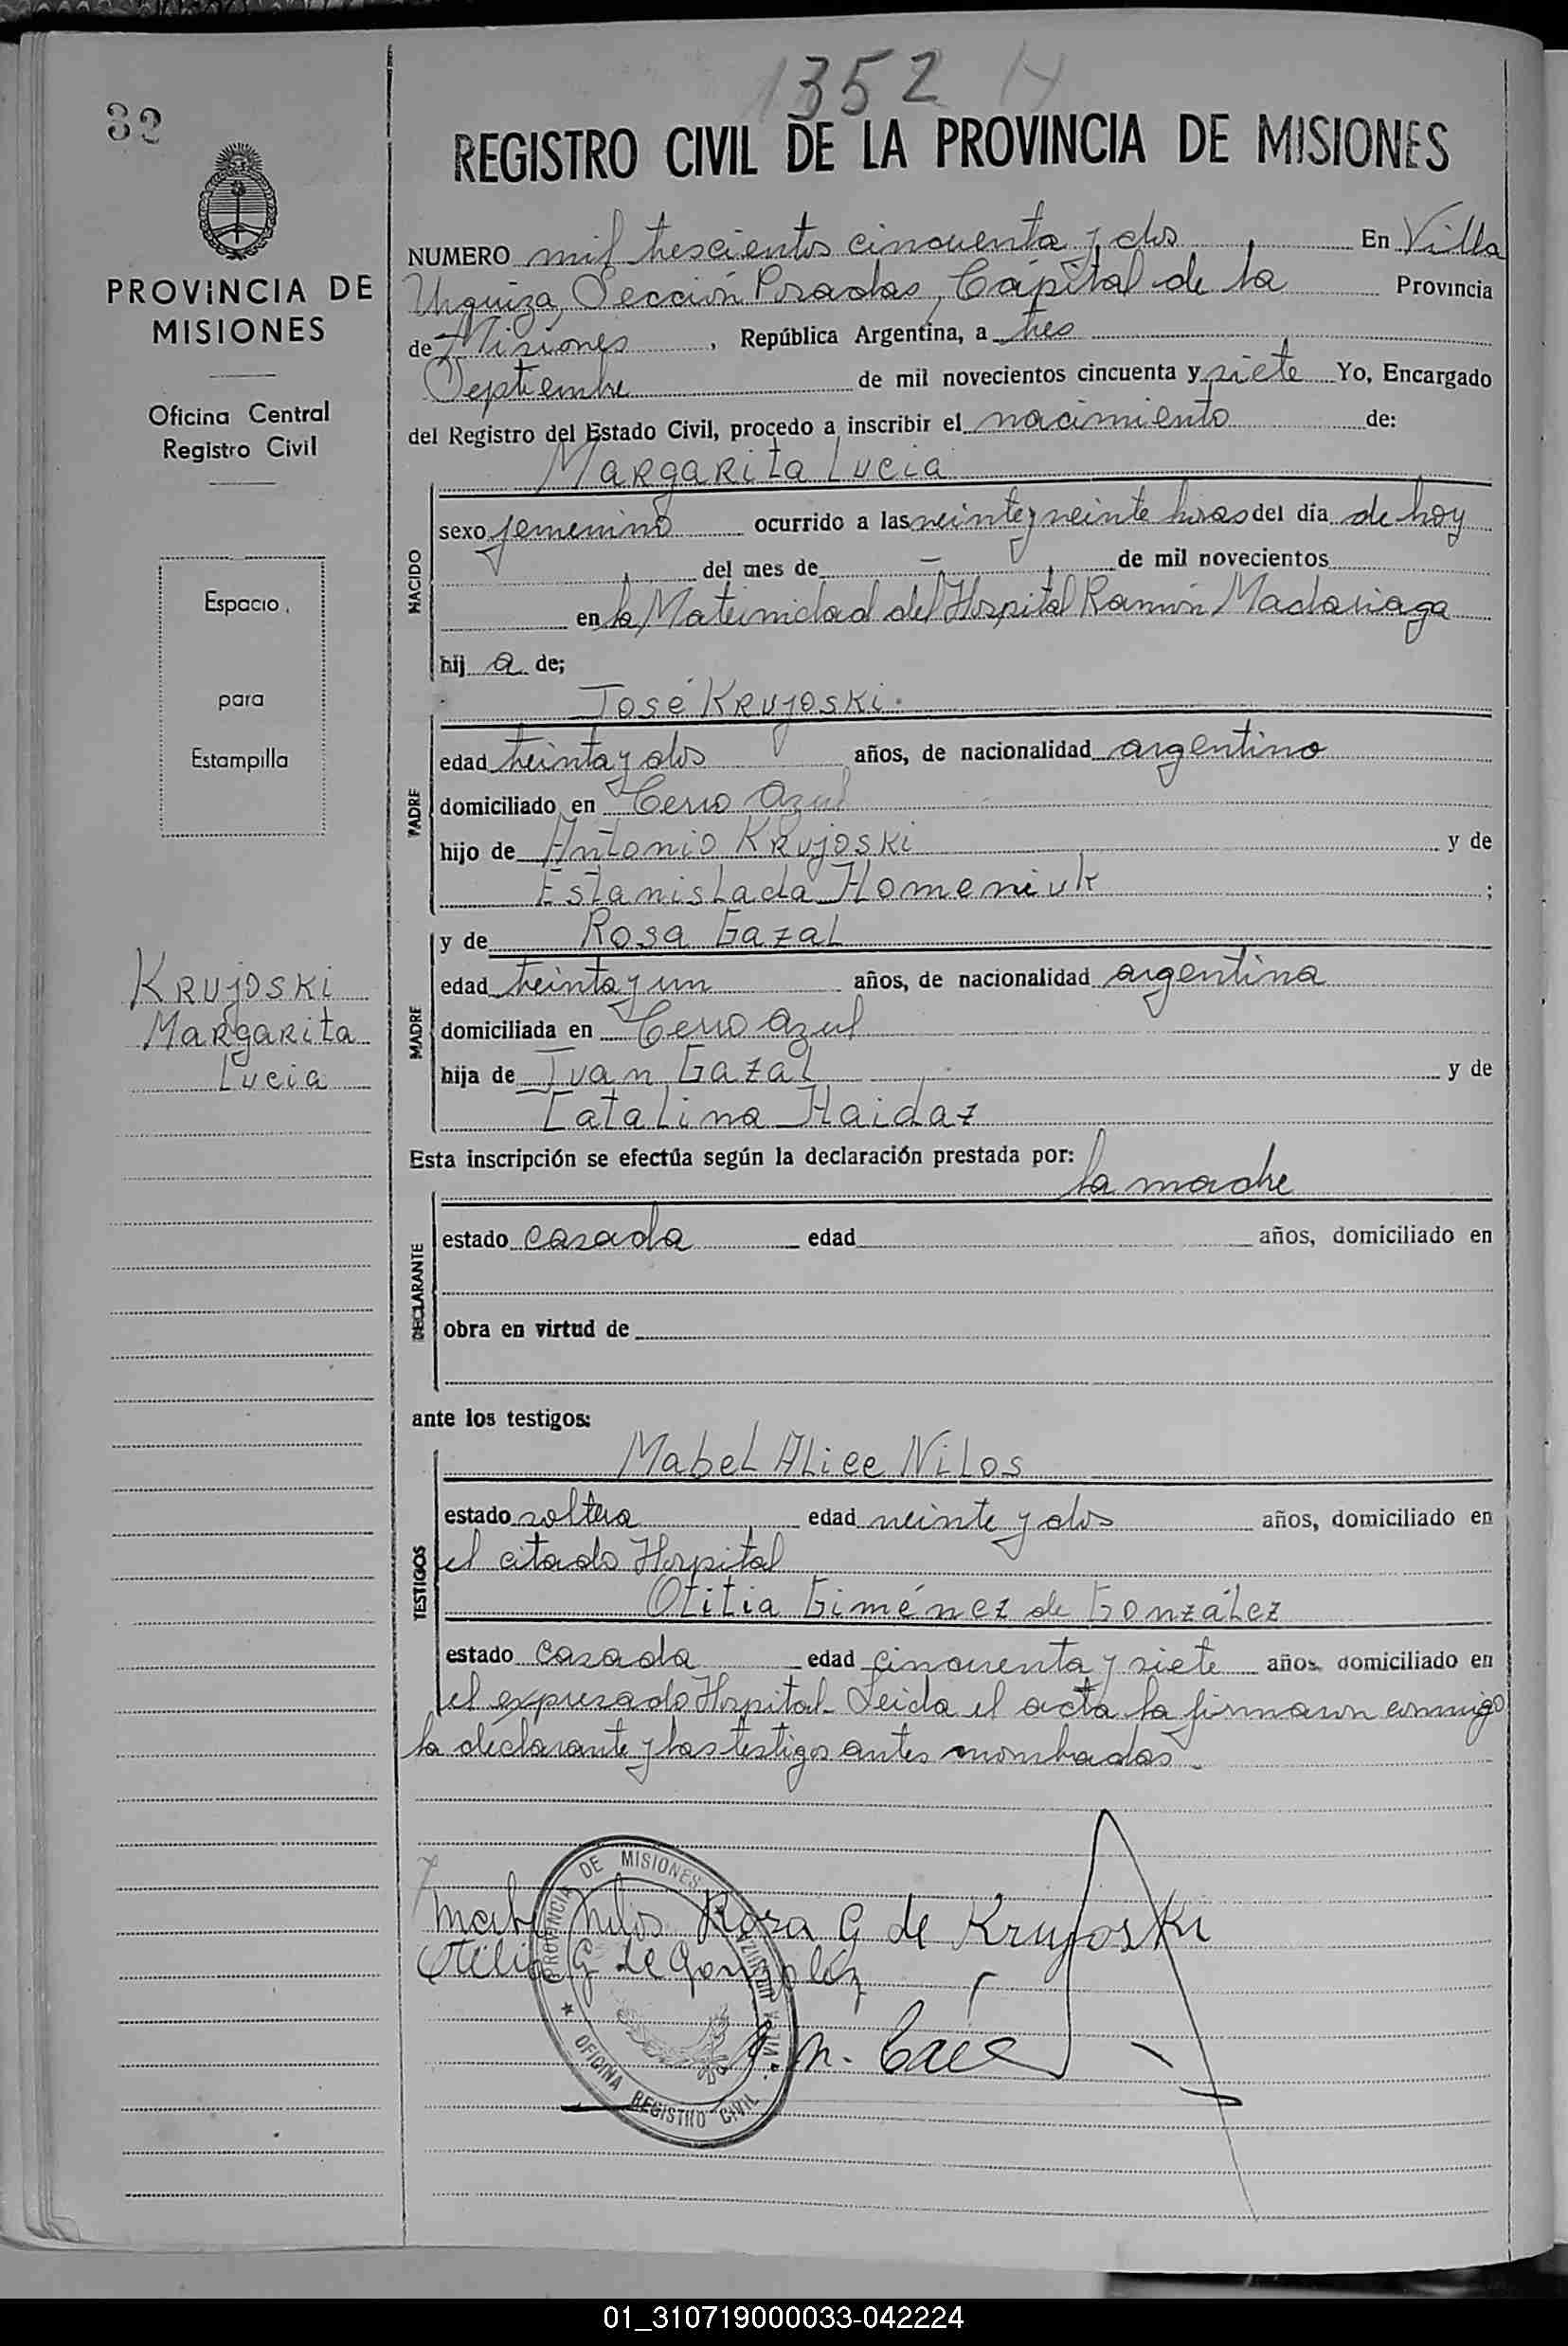 1352
32
REGISTRO CIVIL DE LA PROVINCIA DE MISIONES
PROVINCIA DE
MISIONES
Oficina Central
Registro Civil
Espacio
para
Estampilla
KRUJOSKI
MARGARITA
LUCIA
NUMERO mil trescientos cincuenta y dos, En Villa
Urquiza, Sección Posadas, Capital de la Provincia
de Misiones, República Argentina, a tres
Septiembre de mil novecientos cincuenta y siete Yo, Encargado
del Registro del Estado Civil, procedo a inscribir el nacimiento de:
MARGARITA LUCIA
NACIDO
sexo femenino ocurrido a las veinte y veinte horas del día de hoy
del mes de — de mil novecientos
en la Maternidad del Hospital Ramón Madariaga
hij a de;
José KRUJOSKI.
PADRE
edad treinta y dos años, de nacionalidad argentino
domiciliado en Cerro Azul
hijo de Antonio KRUJOSKI y de
EstanisLada Homeniuk ;
MADRE
y de Rosa GazaL
edad treinta y un años, de nacionalidad argentina
domiciliada en Cerro Azul
hija de Ivan GazaL y de
CataLina Haidaz
Esta inscripción se efectúa según la declaración prestada por:
la madre
DECLARANTE
estado casada edad años, domiciliado en
obra en virtud de
ante los testigos:
MabeL ALice NiLos
TESTIGOS
estado soltera edad veinte y dos años, domiciliado en
el citado Hospital
OtiLia Giménez de GonzáLez
estado casada edad cincuenta y siete años domiciliado en
el expresado Hospital- Leida el acta la firmaron conmigo
la declarante y las testigos antes nombradas-
Rosa G de Krujoski
Otilia G de González
PROVINCIA DE MISIONES
VILLA URQUIZA
OFICINA REGISTRO CIVIL
01_310719000033-042224